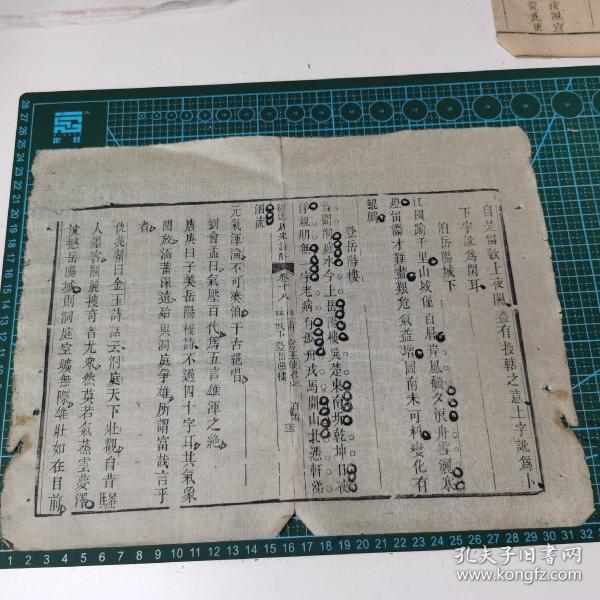 自是當歡上夜闌蓋有投轄之意上字訛為卜
下字訛為閒耳
泊岳陽城下
江國踰千里山城僅百層岸風翻夕浪舟雪灑寒
燈留滯才難盡艱危氣益增圖南未可料變化有
鯤鵬
登岳陽樓
昔聞洞庭水今上岳陽樓吳楚東南坼乾坤日夜
浮親朋無一字老病有孤舟戎馬關山北憑軒涕
泗流
卷十八
泊岳
城下登岳陽樓
元氣渾淪不可湊泊千古絕唱
劉會孟曰氣壓百代為五言雄渾之絕
唐庚曰子美岳陽樓詩不過四十字耳其氣象
閎放涵蓄深遠殆與洞庭爭雄所謂富哉言乎
者
仇兆鰲曰金玉詩話云洞庭天下壯觀自昔騷
人墨客鬭麗搜奇者尤眾然莫若氣蒸雲夢澤
波撼岳陽城則洞庭空曠無際雄壯如在目前
後
宣
從此更
孔夫子旧书网
www.kongfz.com